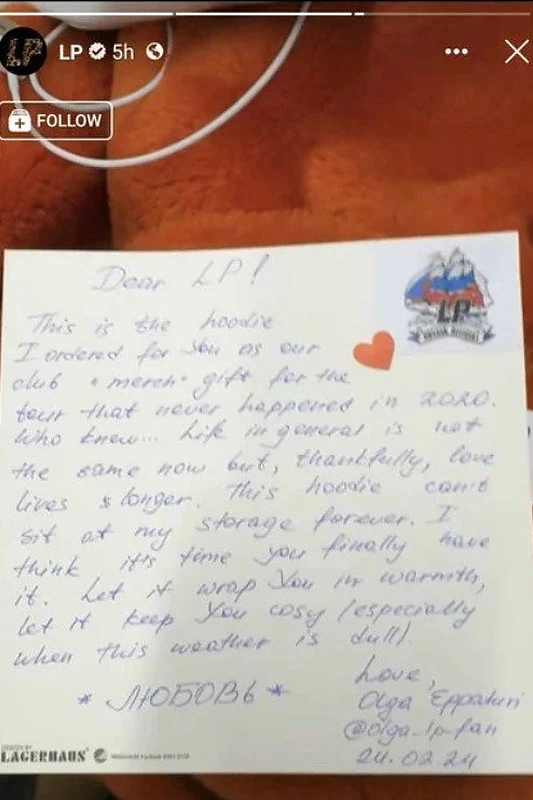 LP 5h
FOLLOW
Dear LP!
LP
This is the hoodie
I ordered for You as our
club "merch" gift for the
tour that never happened in 2020.
Who knew... Life in general is not
the same now but, thankfully, love
lives longer. This hoodie can't
sit at my storage forever. I
think it's time you finally have
it. Let it wrap You in warmth,
let it keep You cosy (especially
when this weather is dull)
Love,
* ЛЮБОВЬ *
Olga
@olga_lp_fan
24.02.24
DESIGN BY
LAGERHAUS